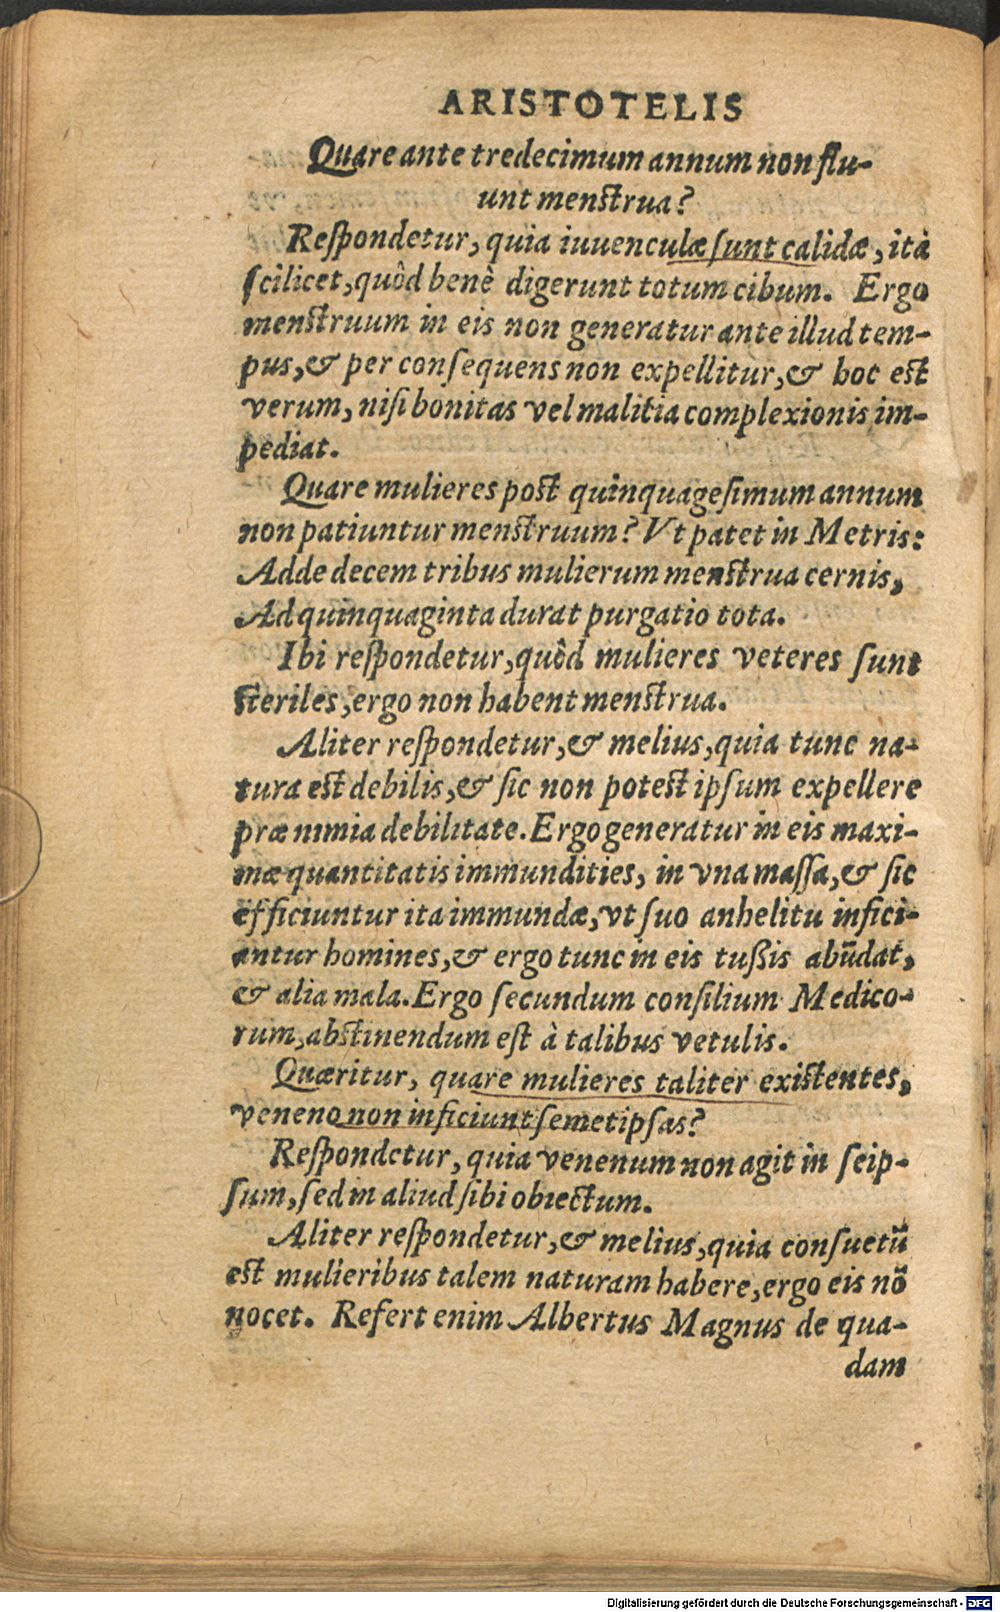 ARISTOTELIS
Quare ante tredecimum annum non flu-
unt menstrua?
Respondetur, quia iuuenculæ sunt calidæ, ità
scilicet, quòd benè digerunt totum cibum. Ergo
menstruum in eis non generatur ante illud tem-
pus, & per consequens non expellitur, & hoc est
verum, nisi bonitas vel malitia complexionis im-
pediat.
Quare mulieres post quinquagesimum annum
non patiuntur menstruum? Vt patet in Metris:
Adde decem tribus mulierum menstrua cernis,
Ad quinquaginta durat purgatio tota.
Ibi respondetur, quòd mulieres veteres sunt
steriles, ergo non habent menstrua.
Aliter respondetur, & melius, quia tunc na-
tura est debilis, & sic non potest ipsum expellere
præ nimia debilitate. Ergo generatur in eis maxi-
mæ quantitatis immundities, in vna massa, & sic
efficiuntur ita immundæ, vt suo anhelitu infici-
antur homines, & ergo tunc in eis tußis abūdat,
& alia mala. Ergo secundum consilium Medico-
rum, abstinendum est à talibus vetulis.
Quæritur, quare mulieres taliter existentes,
veneno non inficiunt semetipsas?
Respondetur, quia venenum non agit in seip-
sum, sed in aliud sibi obiectum.
Aliter respondetur, & melius, quia consuetū
est mulieribus talem naturam habere, ergo eis nō
nocet. Refert enim Albertus Magnus de qua-
dam
Digitalisierung gefördert durch die Deutsche Forschungsgemeinschaft - DFG